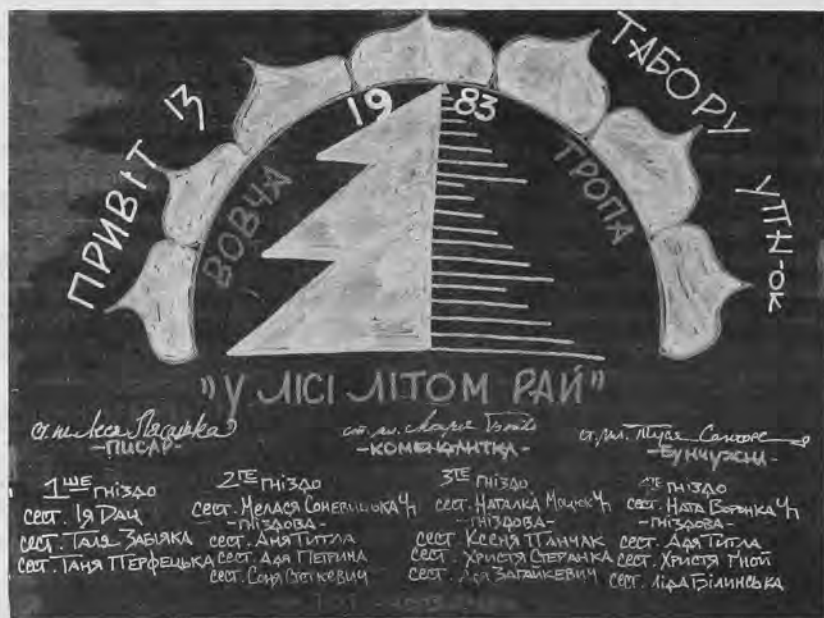 ПРИВІТ ІЗ ТАБОРУ УПН-ОК
19 83
ВОВЧА ТРОПА
"У ЛІСІ ЛІТОМ РАЙ"
-ПИСАР-
-КОМЕНДАНТКА-
-БУНЧУЖНИ-
1ШЕ ГНІЗДО
СЕСТ. ІЯ ДАЦ
СЕСТ. ТАЛЯ ЗАБІЯКА
СЕСТ. ТАНЯ ПЕРФЕЦЬКА
2ГЕ ГНІЗДО
СЕСТ. МЕЛАСЯ СОНЕВИЦЬКА ЧП
-ГНІЗДОВА-
СЕСТ. АНЯ ТИТЛА
СЕСТ. АДЯ ПЕТРИНА
СЕСТ. СОНЯ
3ТЕ ГНІЗДО
СЕСТ. НАТАЛКА МОЦЮК ЧП
-ГНІЗДОВА-
СЕСТ. КСЕНЯ ПАНЧАК
СЕСТ. ХРИСТЯ СТЕРАНКА
СЕСТ. ЗАГАЙКЕВИЧ
4ТЕ ГНІЗДО
СЕСТ. НАТА ВОРОНКА ЧП
-ГНІЗДОВА-
СЕСТ. АДЯ ТИТЛА
СЕСТ. ХРИСТЯ ГНОЙ
СЕСТ. ЛІДА БІЛИНСЬКА